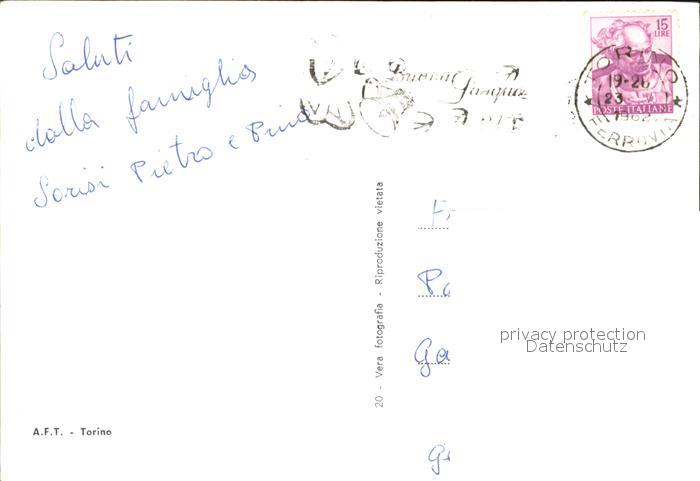 Saluti
dalla famiglia
Sorisi Pietro e Pina
Buona Pasqua
15
LIRE
POSTE ITALIANE
TORINO
19-20
23
1962
FERROVIA
20 - Vera fotografia - Riproduzione vietata
Pa
Ga
privacy protection
Datenschutz
A.F.T. - Torino